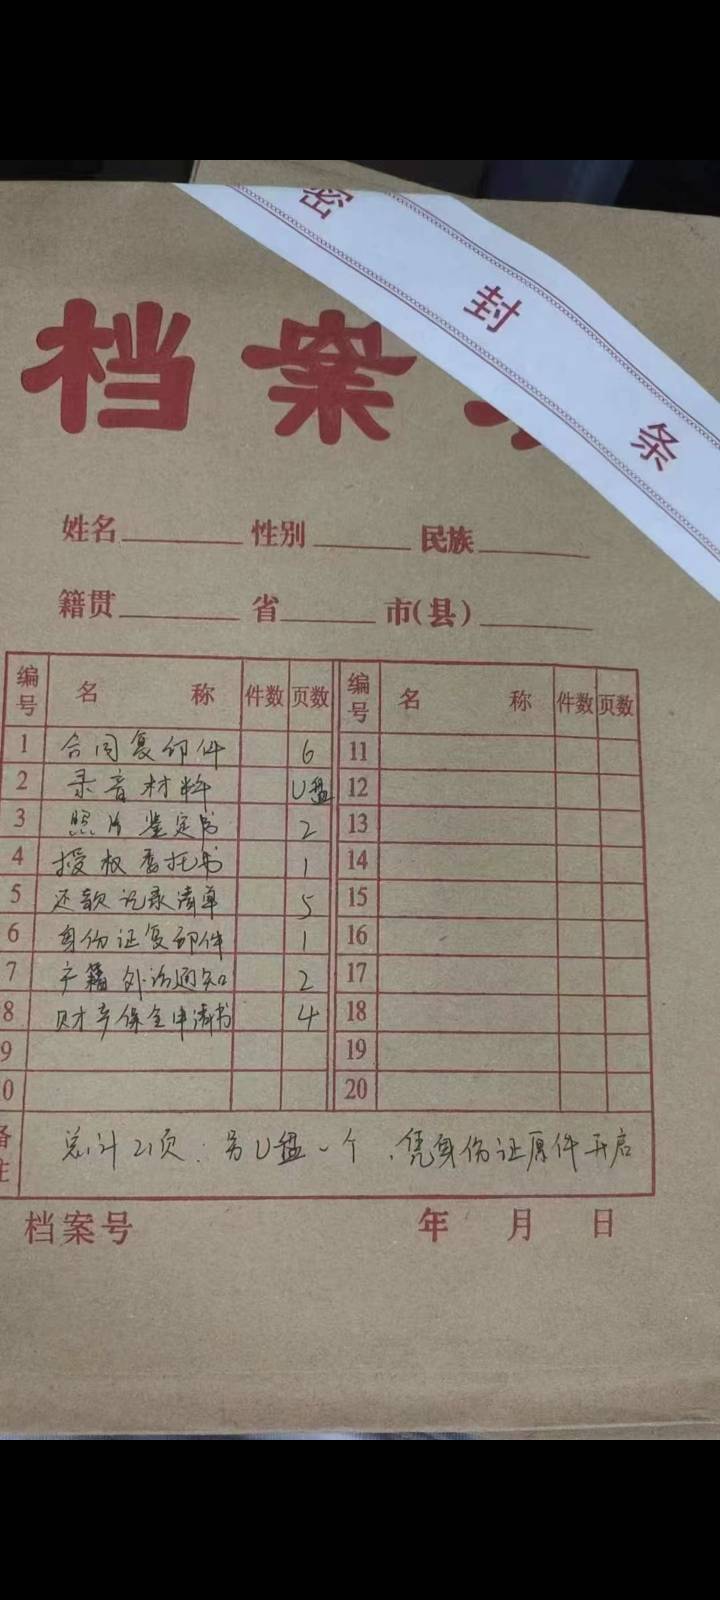 密封条
档案
姓名 性别 民族
籍贯 省 市(县)
编号 名称 件数 页数 编号 名称 件数 页数
1 合同复印件 6 11
2 录音材料 U盘 12
3 照片鉴定书 2 13
4 授权委托书 1 14
5 还款记录清单 5 15
6 身份证复印件 1 16
7 户籍外访通知 2 17
8 财产保全申请书 4 18
9 19
0 20
备注 总计21页. 另U盘一个, 凭身份证原件开启
档案号 年 月 日